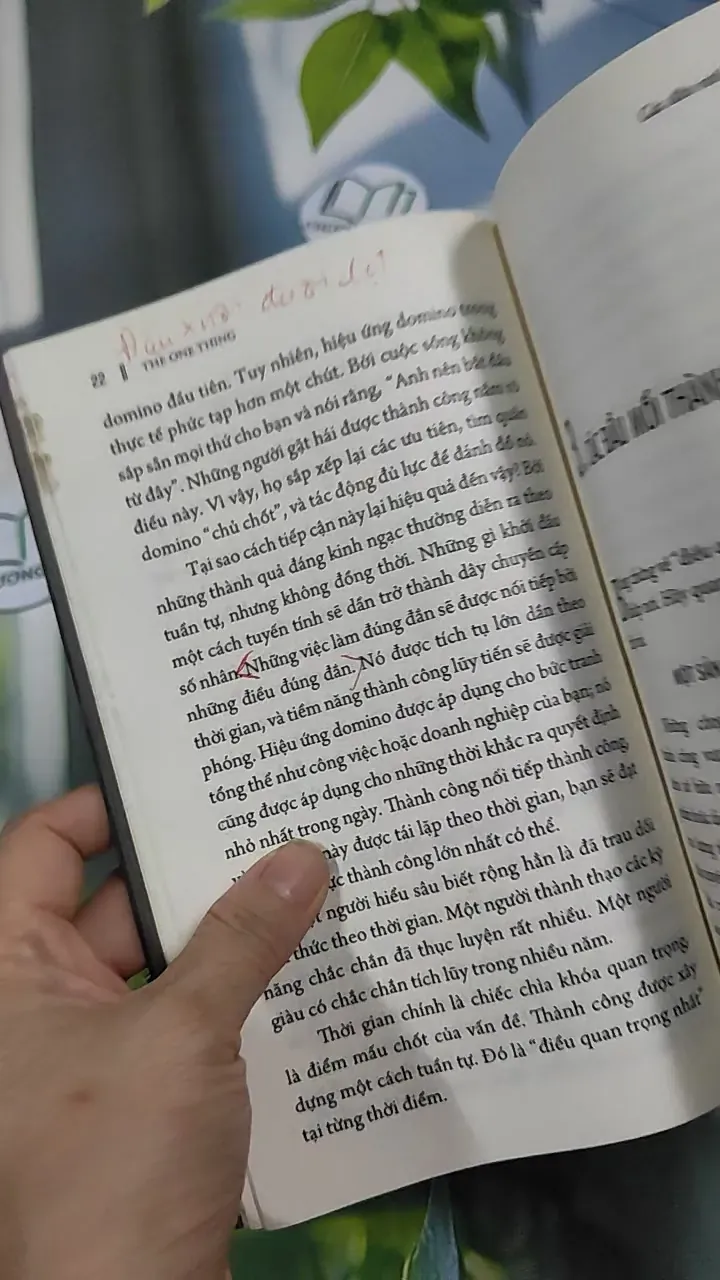 22 || THE ONE THING
domino đầu tiên. Tuy nhiên, hiệu ứng domino trong
thực tế phức tạp hơn một chút. Bởi cuộc sống không
sắp sẵn mọi thứ cho bạn và nói rằng, "Anh nên bắt đầu
từ đây". Những người gặt hái được thành công nắm rõ
điều này. Vì vậy, họ sắp xếp lại các ưu tiên, tìm quân
domino "chủ chốt", và tác động đủ lực để đánh đổ nó.
Tại sao cách tiếp cận này lại hiệu quả đến vậy? Bởi
những thành quả đáng kinh ngạc thường diễn ra theo
tuần tự, nhưng không đồng thời. Những gì khởi đầu
một cách tuyến tính sẽ dần trở thành dây chuyền cấp
số nhân. Những việc làm đúng đắn sẽ được nối tiếp bởi
những điều đúng đắn. Nó được tích tụ lớn dần theo
thời gian, và tiềm năng thành công lũy tiến sẽ được giải
phóng. Hiệu ứng domino được áp dụng cho bức tranh
tổng thể như công việc hoặc doanh nghiệp của bạn; nó
cũng được áp dụng cho những thời khắc ra quyết định
nhỏ nhất trong ngày. Thành công nối tiếp thành công,
này được tái lặp theo thời gian, bạn sẽ đạt
thành công lớn nhất có thể.
người hiểu sâu biết rộng hẳn là đã trau dồi
thức theo thời gian. Một người thành thạo các kỹ
năng chắc chắn đã thục luyện rất nhiều. Một người
giàu có chắc chắn tích lũy trong nhiều năm.
Thời gian chính là chiếc chìa khóa quan trọng
là điểm mấu chốt của vấn đề. Thành công được xây
dựng một cách tuần tự. Đó là "điều quan trọng nhất"
tại từng thời điểm.